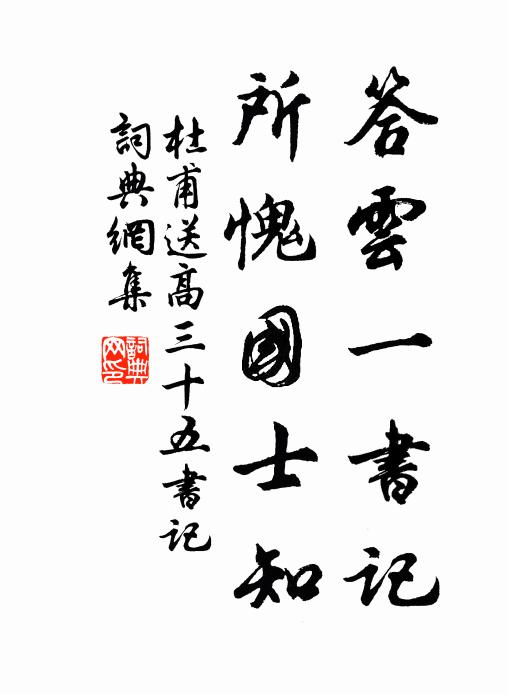 答雲一書記
所愧國士知
杜甫送高三十五書記
詞典網集
詞典
網印